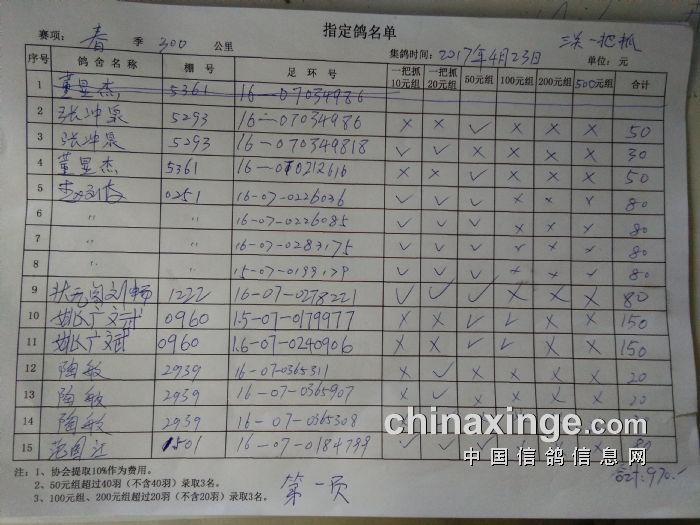 指定鸽名单
赛项: 春 季 300 公里 集鸽时间: 2017年4月23日 单位: 元
三关一把抓
序号 鸽舍名称 棚号 足环号 一把抓10元组 一把抓20元组 50元组 100元组 200元组 500元组 合计
1 董昱杰 5361 16-07034986
2 张冲泉 5293 16-07034986 × × ✓ × × × 50
3 张冲泉 5293 16-070349818 ✓ ✓ × × × × 30
4 董昱杰 5361 16-0212616 × × ✓ × × × 50
5 0251 16-07-0226036 ✓ ✓ ✓ × × × 80
6 〃 〃 16-07-0226085 ✓ ✓ ✓ × × × 80
7 〃 〃 16-07-0283175 ✓ ✓ ✓ × × × 80
8 〃 〃 15-07-0199179 ✓ ✓ ✓ × × × 80
9 状元阁刘畅 1222 16-07-0278221 ✓ ✓ ✓ × × × 80
10 姚广文斌 0960 15-07-0179977 × × ✓ ✓ × × 150
11 姚广文斌 0960 16-07-0240906 × × ✓ ✓ × × 150
12 陶敏 2939 16-07-0365311 × ✓ × × × × 20
13 陶敏 2939 16-07-0365907 × ✓ × × × × 20
14 陶敏 2939 16-07-0365308
15 范国江 1501 16-07-0184799 80
chinaxinge.com
中国信鸽信息网
合计: 970.-
注: 1、协会提取10%作为费用。
2、50元组超过40羽(不含40羽)录取3名。
3、100元组、200元组超过20羽(不含20羽)录取3名。
第一页